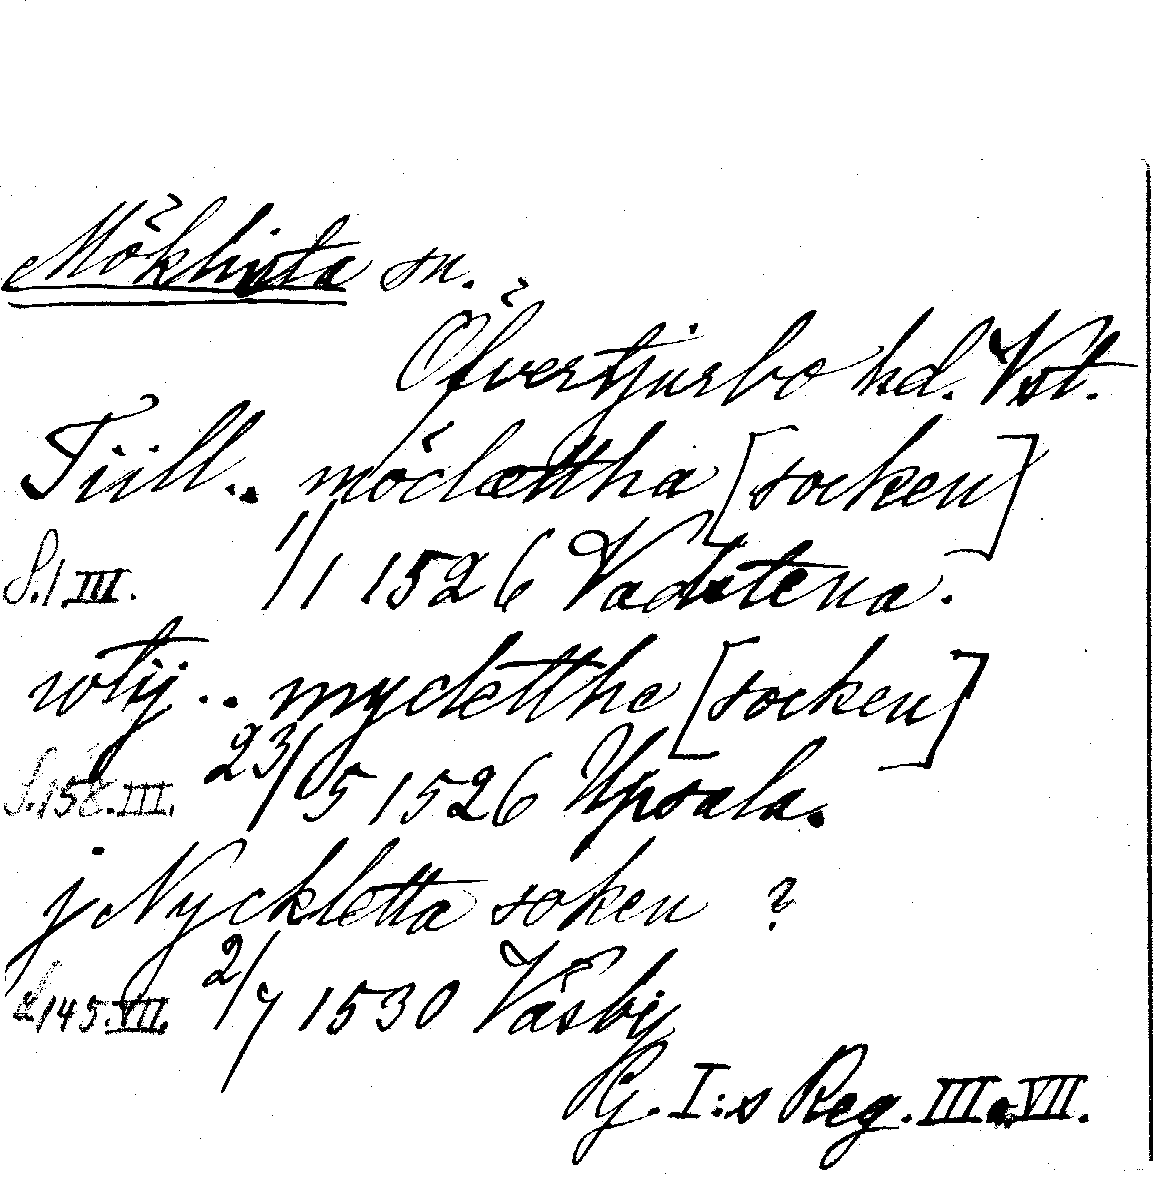 Möklinta sn.
Öfvertjurbo hd. Vst.
Tiill.. möclættha [socken]
S.1.III. 1/1 1526 Vadstena.
wtij.. myclettha [socken]
S.158.III. 23/5 1526 Upsala.
j Nyckletta soken ?
S.145.VII. 2/7 1530 Väsby
G. I:s Reg. III o. VII.